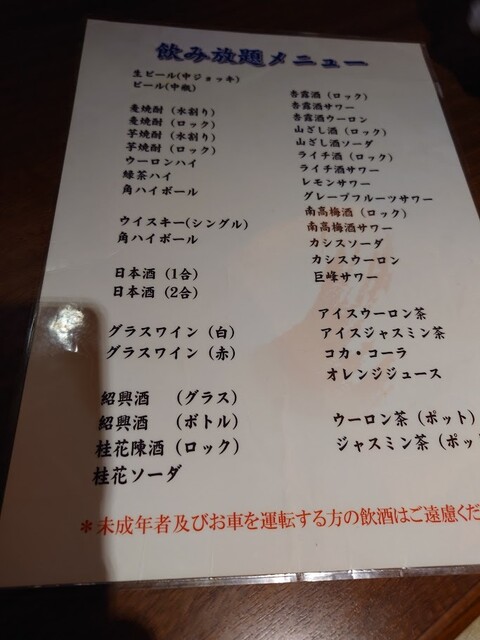 飲み放題メニュー
生ビール(中ジョッキ)
ビール(中瓶)
麦焼酎（水割り）
麦焼酎（ロック）
芋焼酎（水割り）
芋焼酎（ロック）
ウーロンハイ
緑茶ハイ
角ハイボール
ウイスキー(シングル)
角ハイボール
日本酒（1合）
日本酒（2合）
グラスワイン（白）
グラスワイン（赤）
紹興酒　（グラス）
紹興酒　（ボトル）
桂花陳酒（ロック）
桂花ソーダ
杏露酒（ロック）
杏露酒サワー
杏露酒ウーロン
山ざし酒（ロック）
山ざし酒ソーダ
ライチ酒（ロック）
ライチ酒サワー
レモンサワー
グレープフルーツサワー
南高梅酒（ロック）
南高梅酒サワー
カシスソーダ
カシスウーロン
巨峰サワー
アイスウーロン茶
アイスジャスミン茶
コカ・コーラ
オレンジジュース
ウーロン茶（ポット）
ジャスミン茶（ポッ
＊未成年者及びお車を運転する方の飲酒はご遠慮くだ